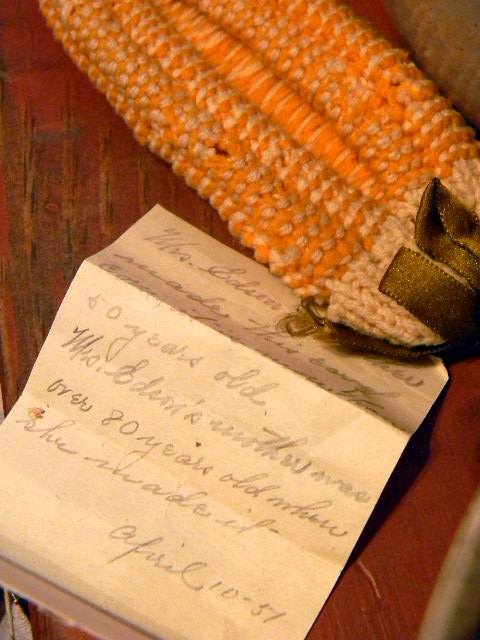 Mrs. Edson
made this
50 years old.
Mrs. Edson's mother was
over 80 years old when
she made it.
April 10-37